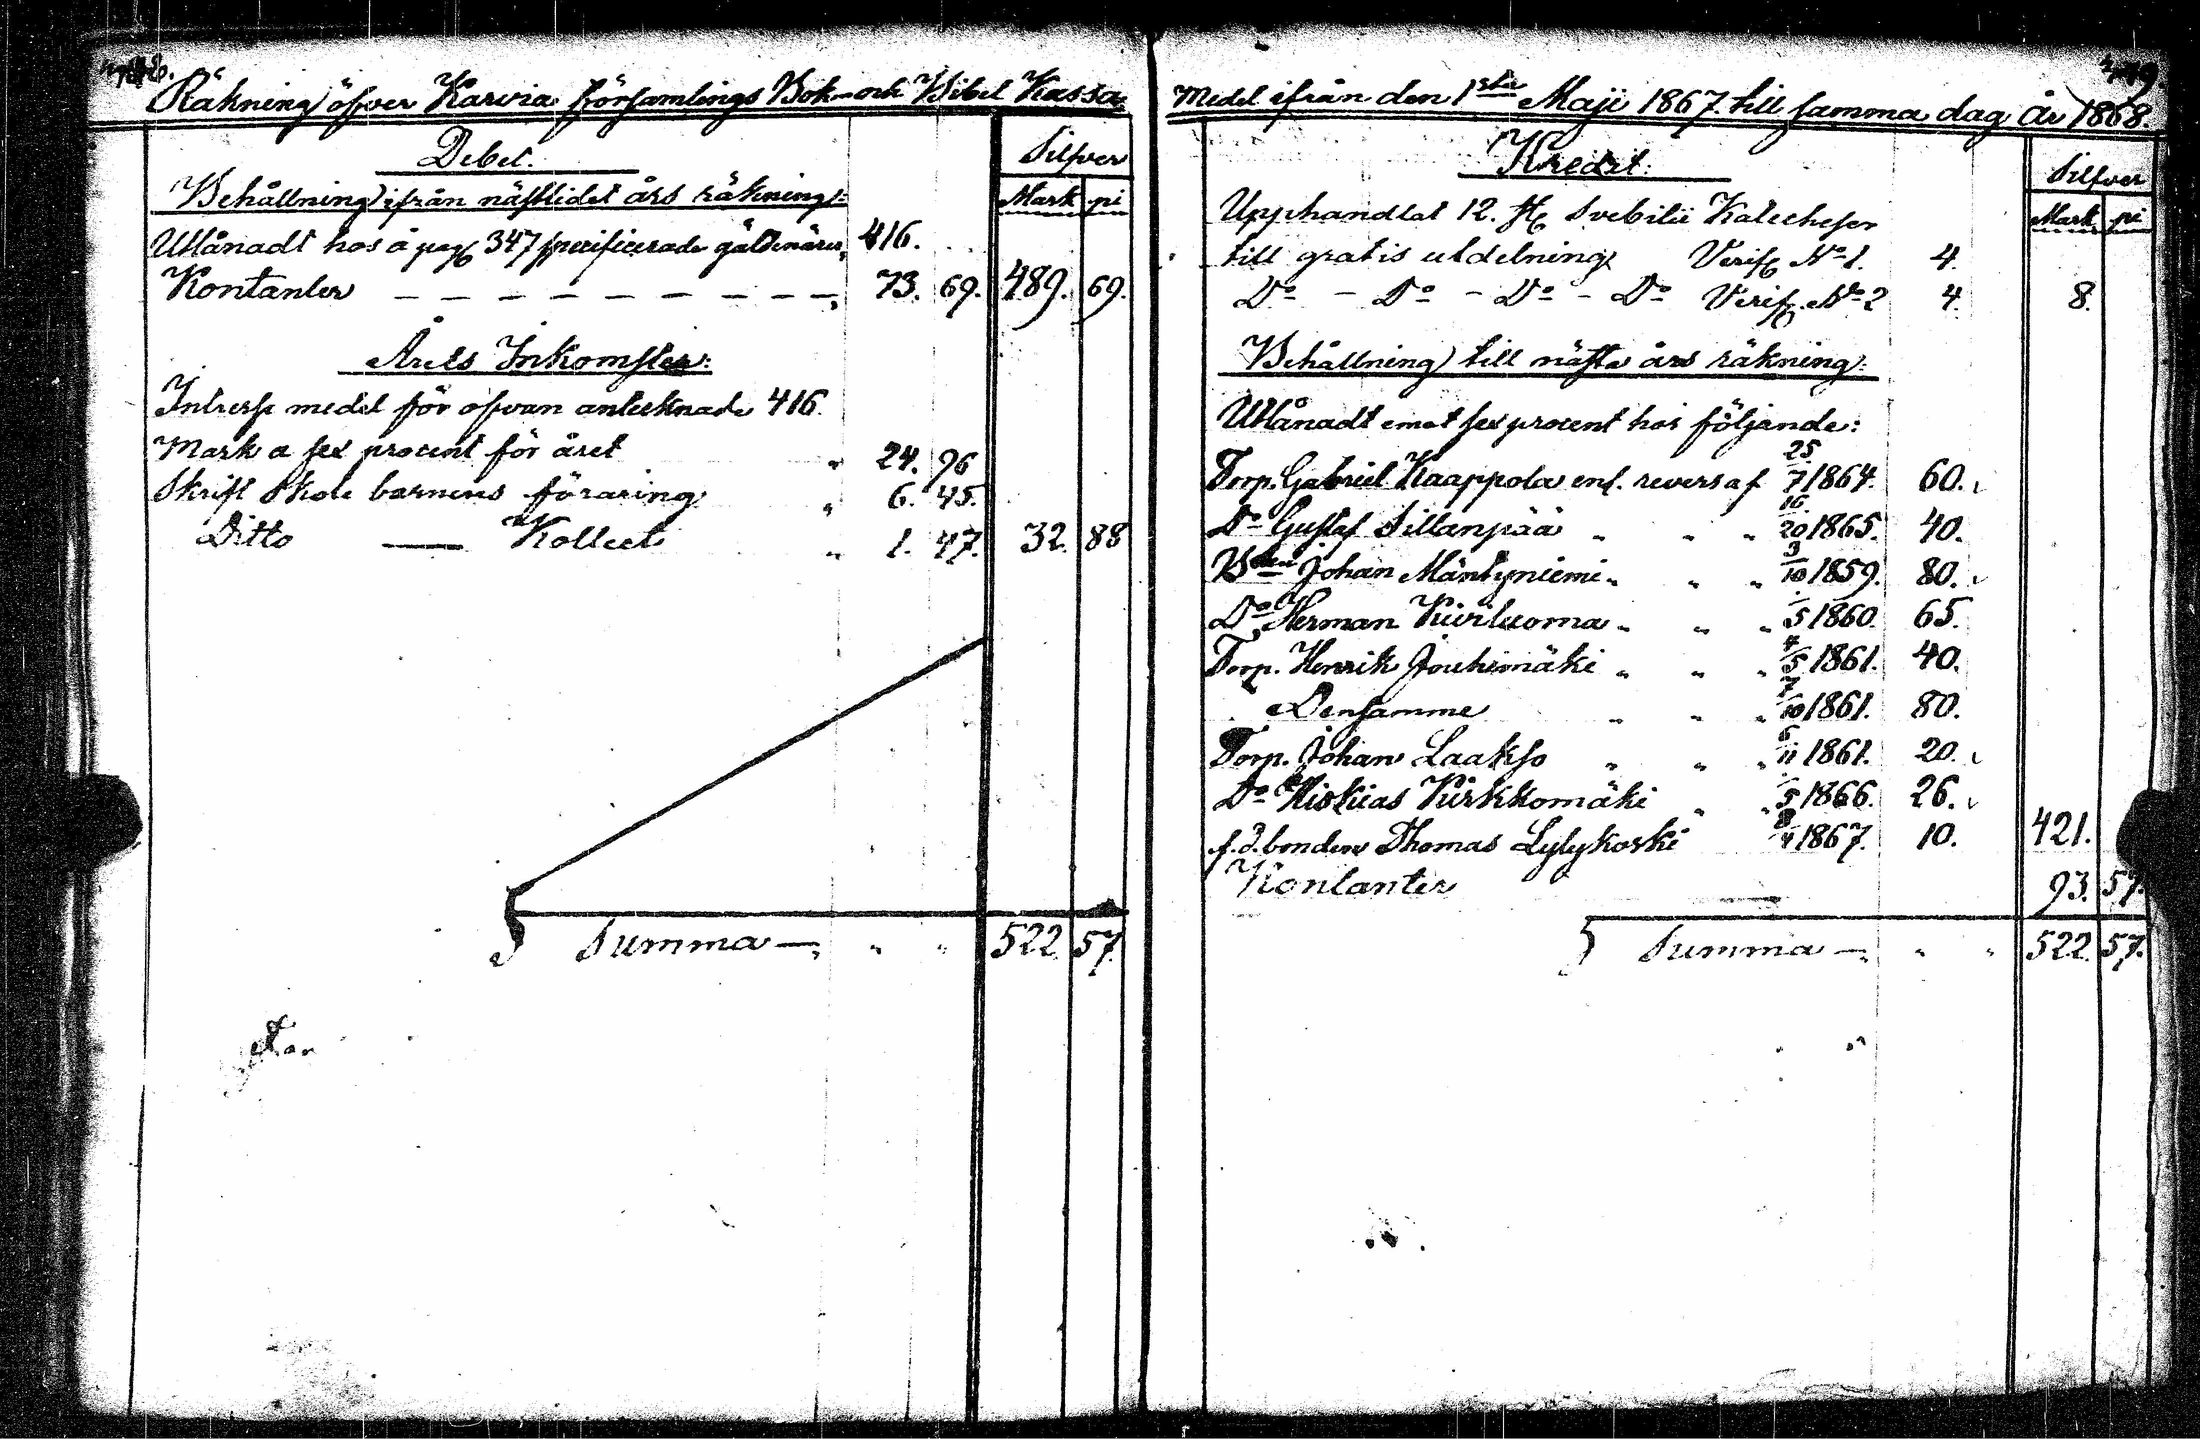 Räkning öfver Karvia församlings Bok- och Bibel Kassa
Debet.
Silfver
Mark pi
Behållning ifrån nästlidet års räkning:
Utlånadt hos å pag 347 specificerade gäldenärer, 416.
Kontanter — — — — — — — — — „ 73. 69. 489. 69.
Årets Inkomster:
Intresse medel för ofvan antecknade 416.
Mark a sex procent för året „ 24. 96
Skrift Skole barnens föraring „ 6. 45.
Ditto — Kollect „ 1. 47. 32. 88
Summa — „ „ „ 522. 57.
Medel ifrån den 1sta Maji 1867. till samma dag år 1868.
Kredit:
Silfver
Mark pi
Upphandlat 12. st Svebilii Katecheser
till gratis utdelning Verif No 1. 4.
Do – Do – Do – Do Verif. No 2 4. 8.
Behållning till nästa års räkning:
Utlånadt emot sex procent hos följande:
Torp. Gabriel Kaappola enl. revers af 25/7 1864. 60.
Do Gustaf Sillanpää „ „ „ 16/20 1865. 40.
Bden Johan Mäntyniemi „ „ „ 3/10 1859. 80.
Do Herman Kiviluoma „ „ „ /5 1860. 65.
Torp. Henrik Jouhimäki „ „ „ 4/5 1861. 40.
Densamme „ „ „ 7/10 1861. 80.
Torp. Johan Laakso „ „ „ 6/11 1861. 20.
Do Hiskias Kirkkomäki „ „ /5 1866. 26.
f. d. bonden Thomas Lylykoski 8/4 1867. 10. 421.
Kontanter 93. 57.
Summa — „ „ „ 522. 57.